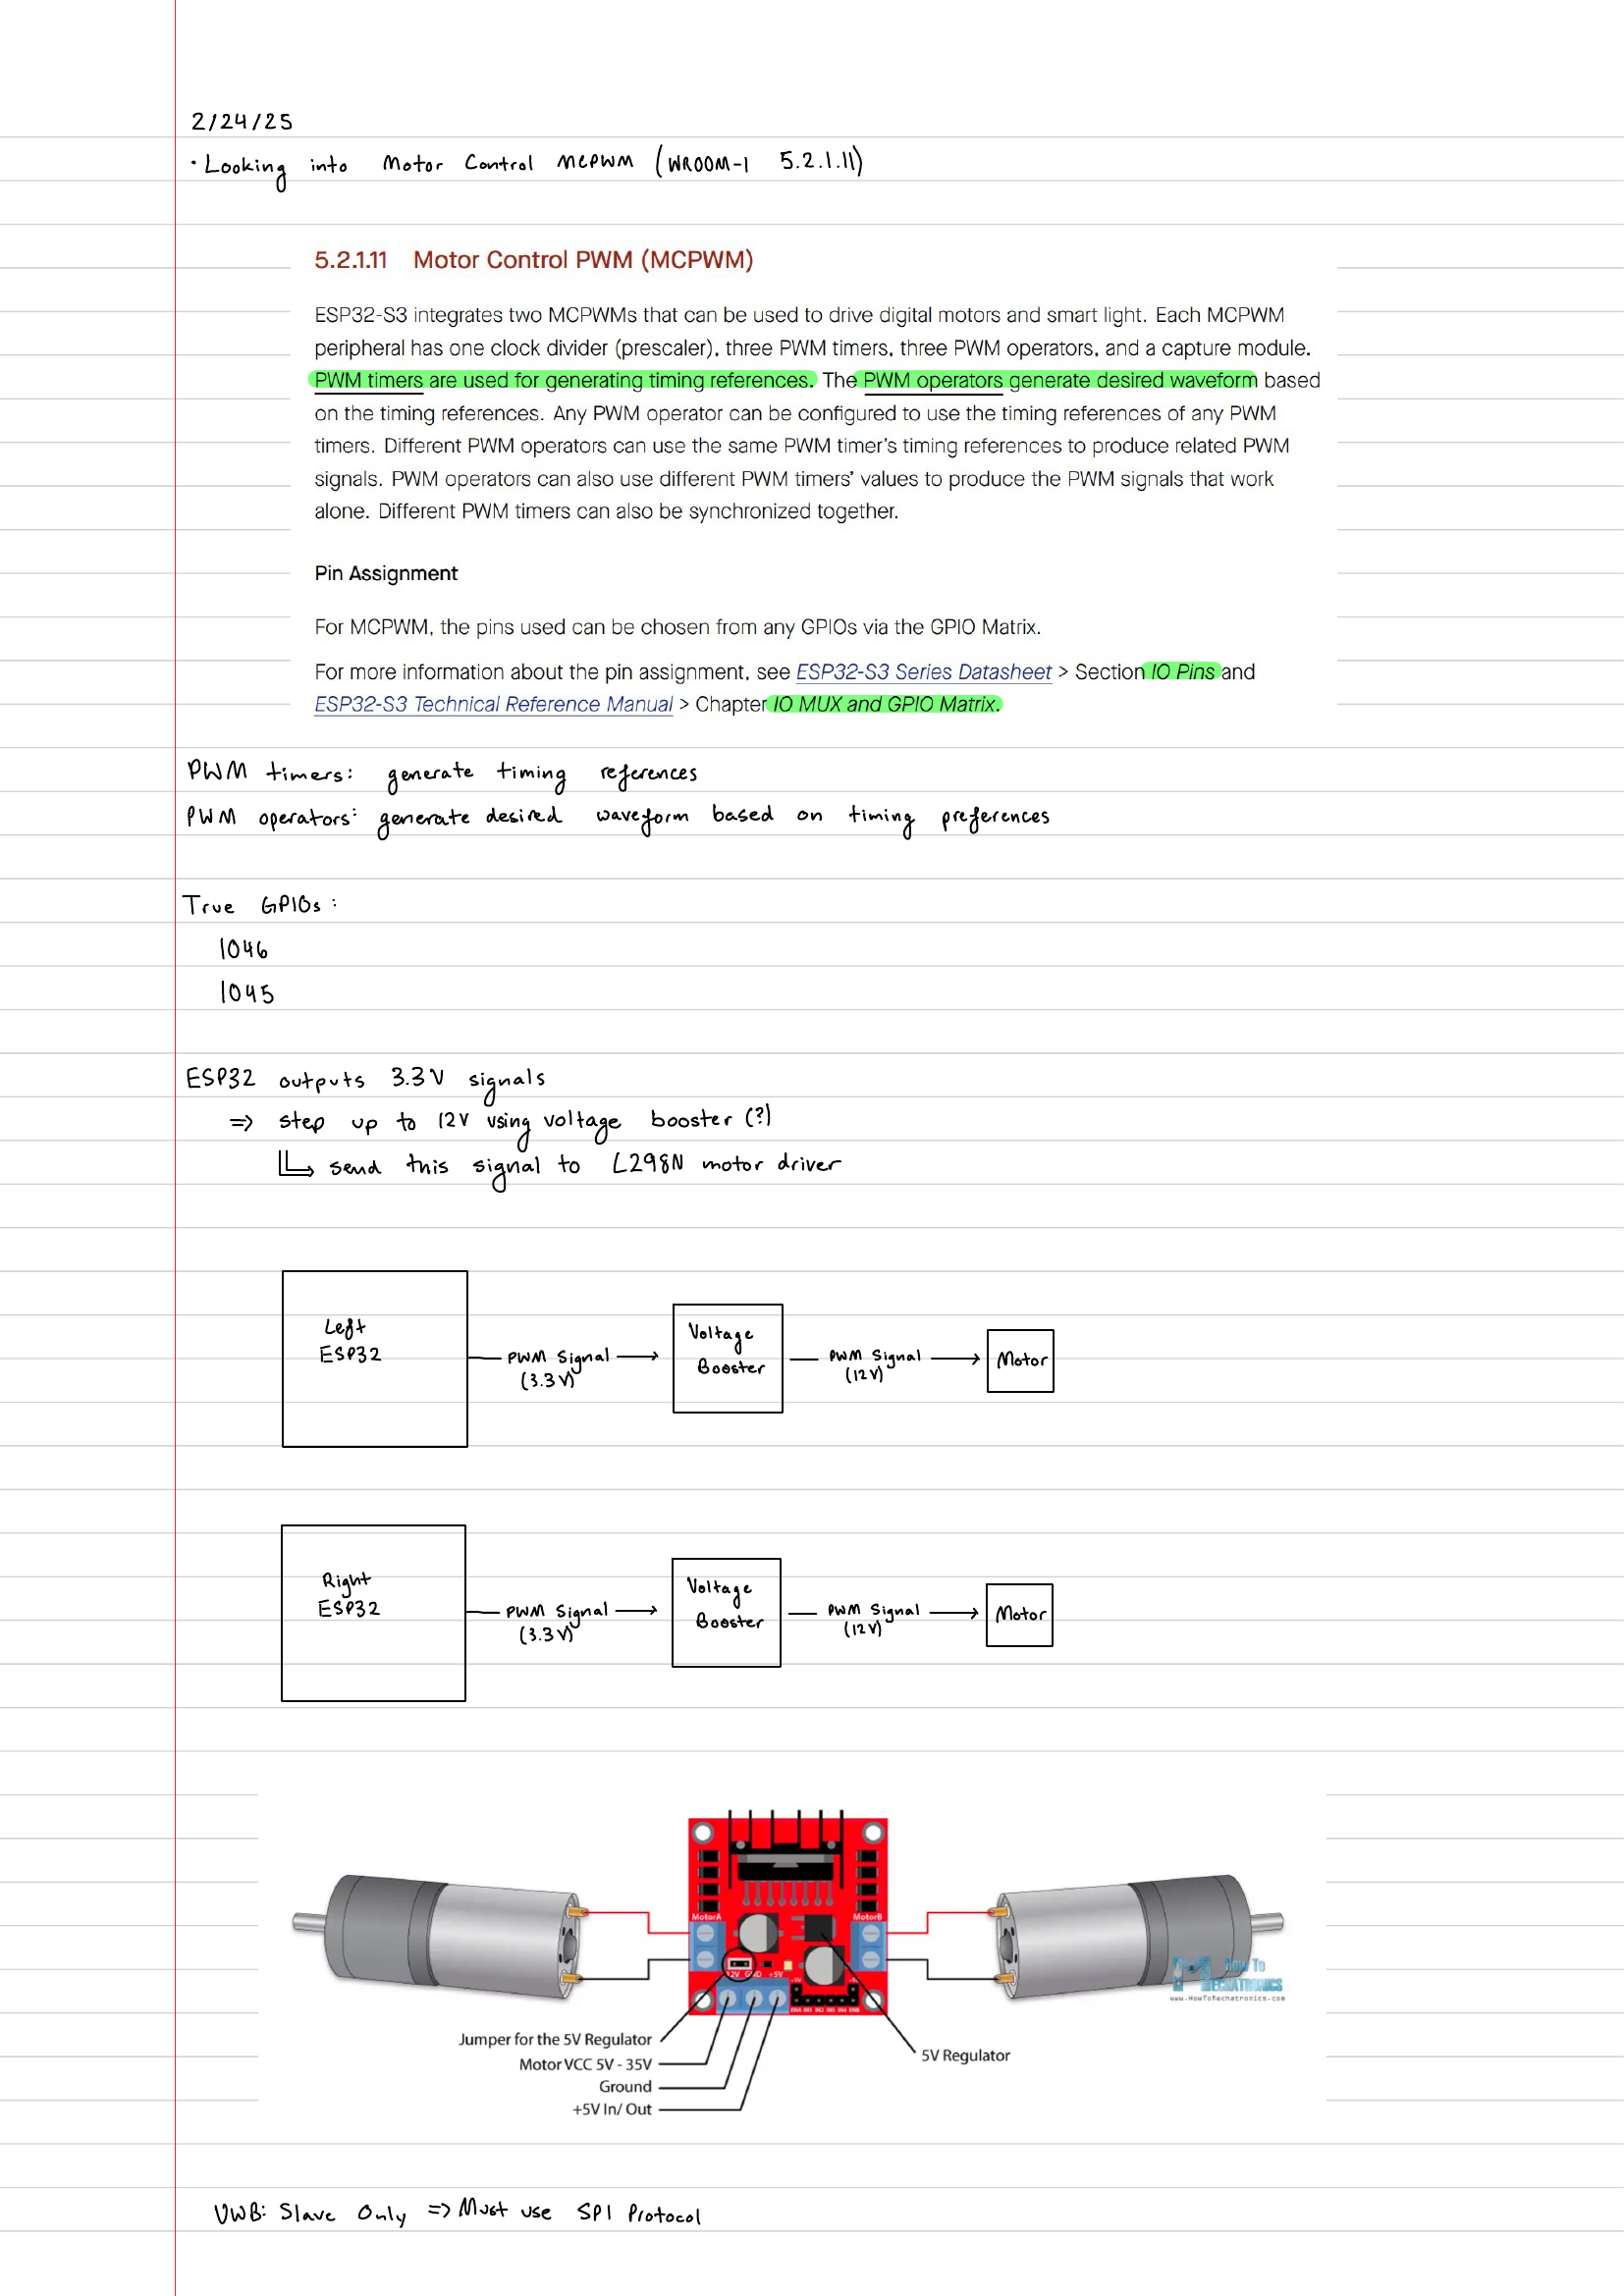 2/24/25
• Looking into Motor Control MCPWM (WROOM-1 5.2.1.11)
5.2.1.11 Motor Control PWM (MCPWM)
ESP32-S3 integrates two MCPWMs that can be used to drive digital motors and smart light. Each MCPWM
peripheral has one clock divider (prescaler), three PWM timers, three PWM operators, and a capture module.
PWM timers are used for generating timing references. The PWM operators generate desired waveform based
on the timing references. Any PWM operator can be configured to use the timing references of any PWM
timers. Different PWM operators can use the same PWM timer's timing references to produce related PWM
signals. PWM operators can also use different PWM timers' values to produce the PWM signals that work
alone. Different PWM timers can also be synchronized together.
Pin Assignment
For MCPWM, the pins used can be chosen from any GPIOs via the GPIO Matrix.
For more information about the pin assignment, see ESP32-S3 Series Datasheet > Section IO Pins and
ESP32-S3 Technical Reference Manual > Chapter IO MUX and GPIO Matrix.
PWM timers: generate timing references
PWM operators: generate desired waveform based on timing preferences
True GPIOs:
IO46
IO45
ESP32 outputs 3.3V signals
⇒ step up to 12V using voltage booster (?)
↳ send this signal to L298N motor driver
Left
ESP32
PWM Signal
(3.3V)
Voltage
Booster
PWM Signal
(12V)
Motor
Right
ESP32
PWM Signal
(3.3V)
Voltage
Booster
PWM Signal
(12V)
Motor
MotorA
MotorB
12V GND +5V
+5V
ENA IN1 IN2 IN3 IN4 ENB
How To
MECHATRONICS
www.HowToMechatronics.com
Jumper for the 5V Regulator
Motor VCC 5V - 35V
Ground
+5V In/ Out
5V Regulator
UWB: Slave Only => Must use SPI Protocol